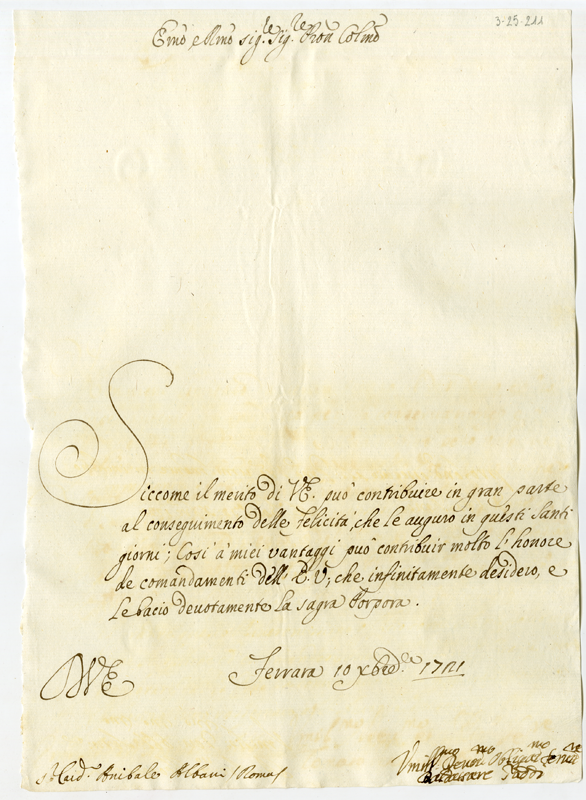 3-25-211
Emo e Rmo Sig.re Sig.re Pron Colmo
Siccome il merito di VE. può contribuire in gran parte
al conseguimento delle felicità, che le auguro in questi Santi
giorni; Così à miei vantaggi può contribuir molto l'honore
de comandamenti dell' E.V; che infinitamente desidero, e
Le bacio devotamente la sagra Porpora.
Ferrara 10 Xbre 1721
VE
Card. Anibale Albani / Roma /
Umil.mo Devot.mo Oblig.mo Serv.re
Baldassare